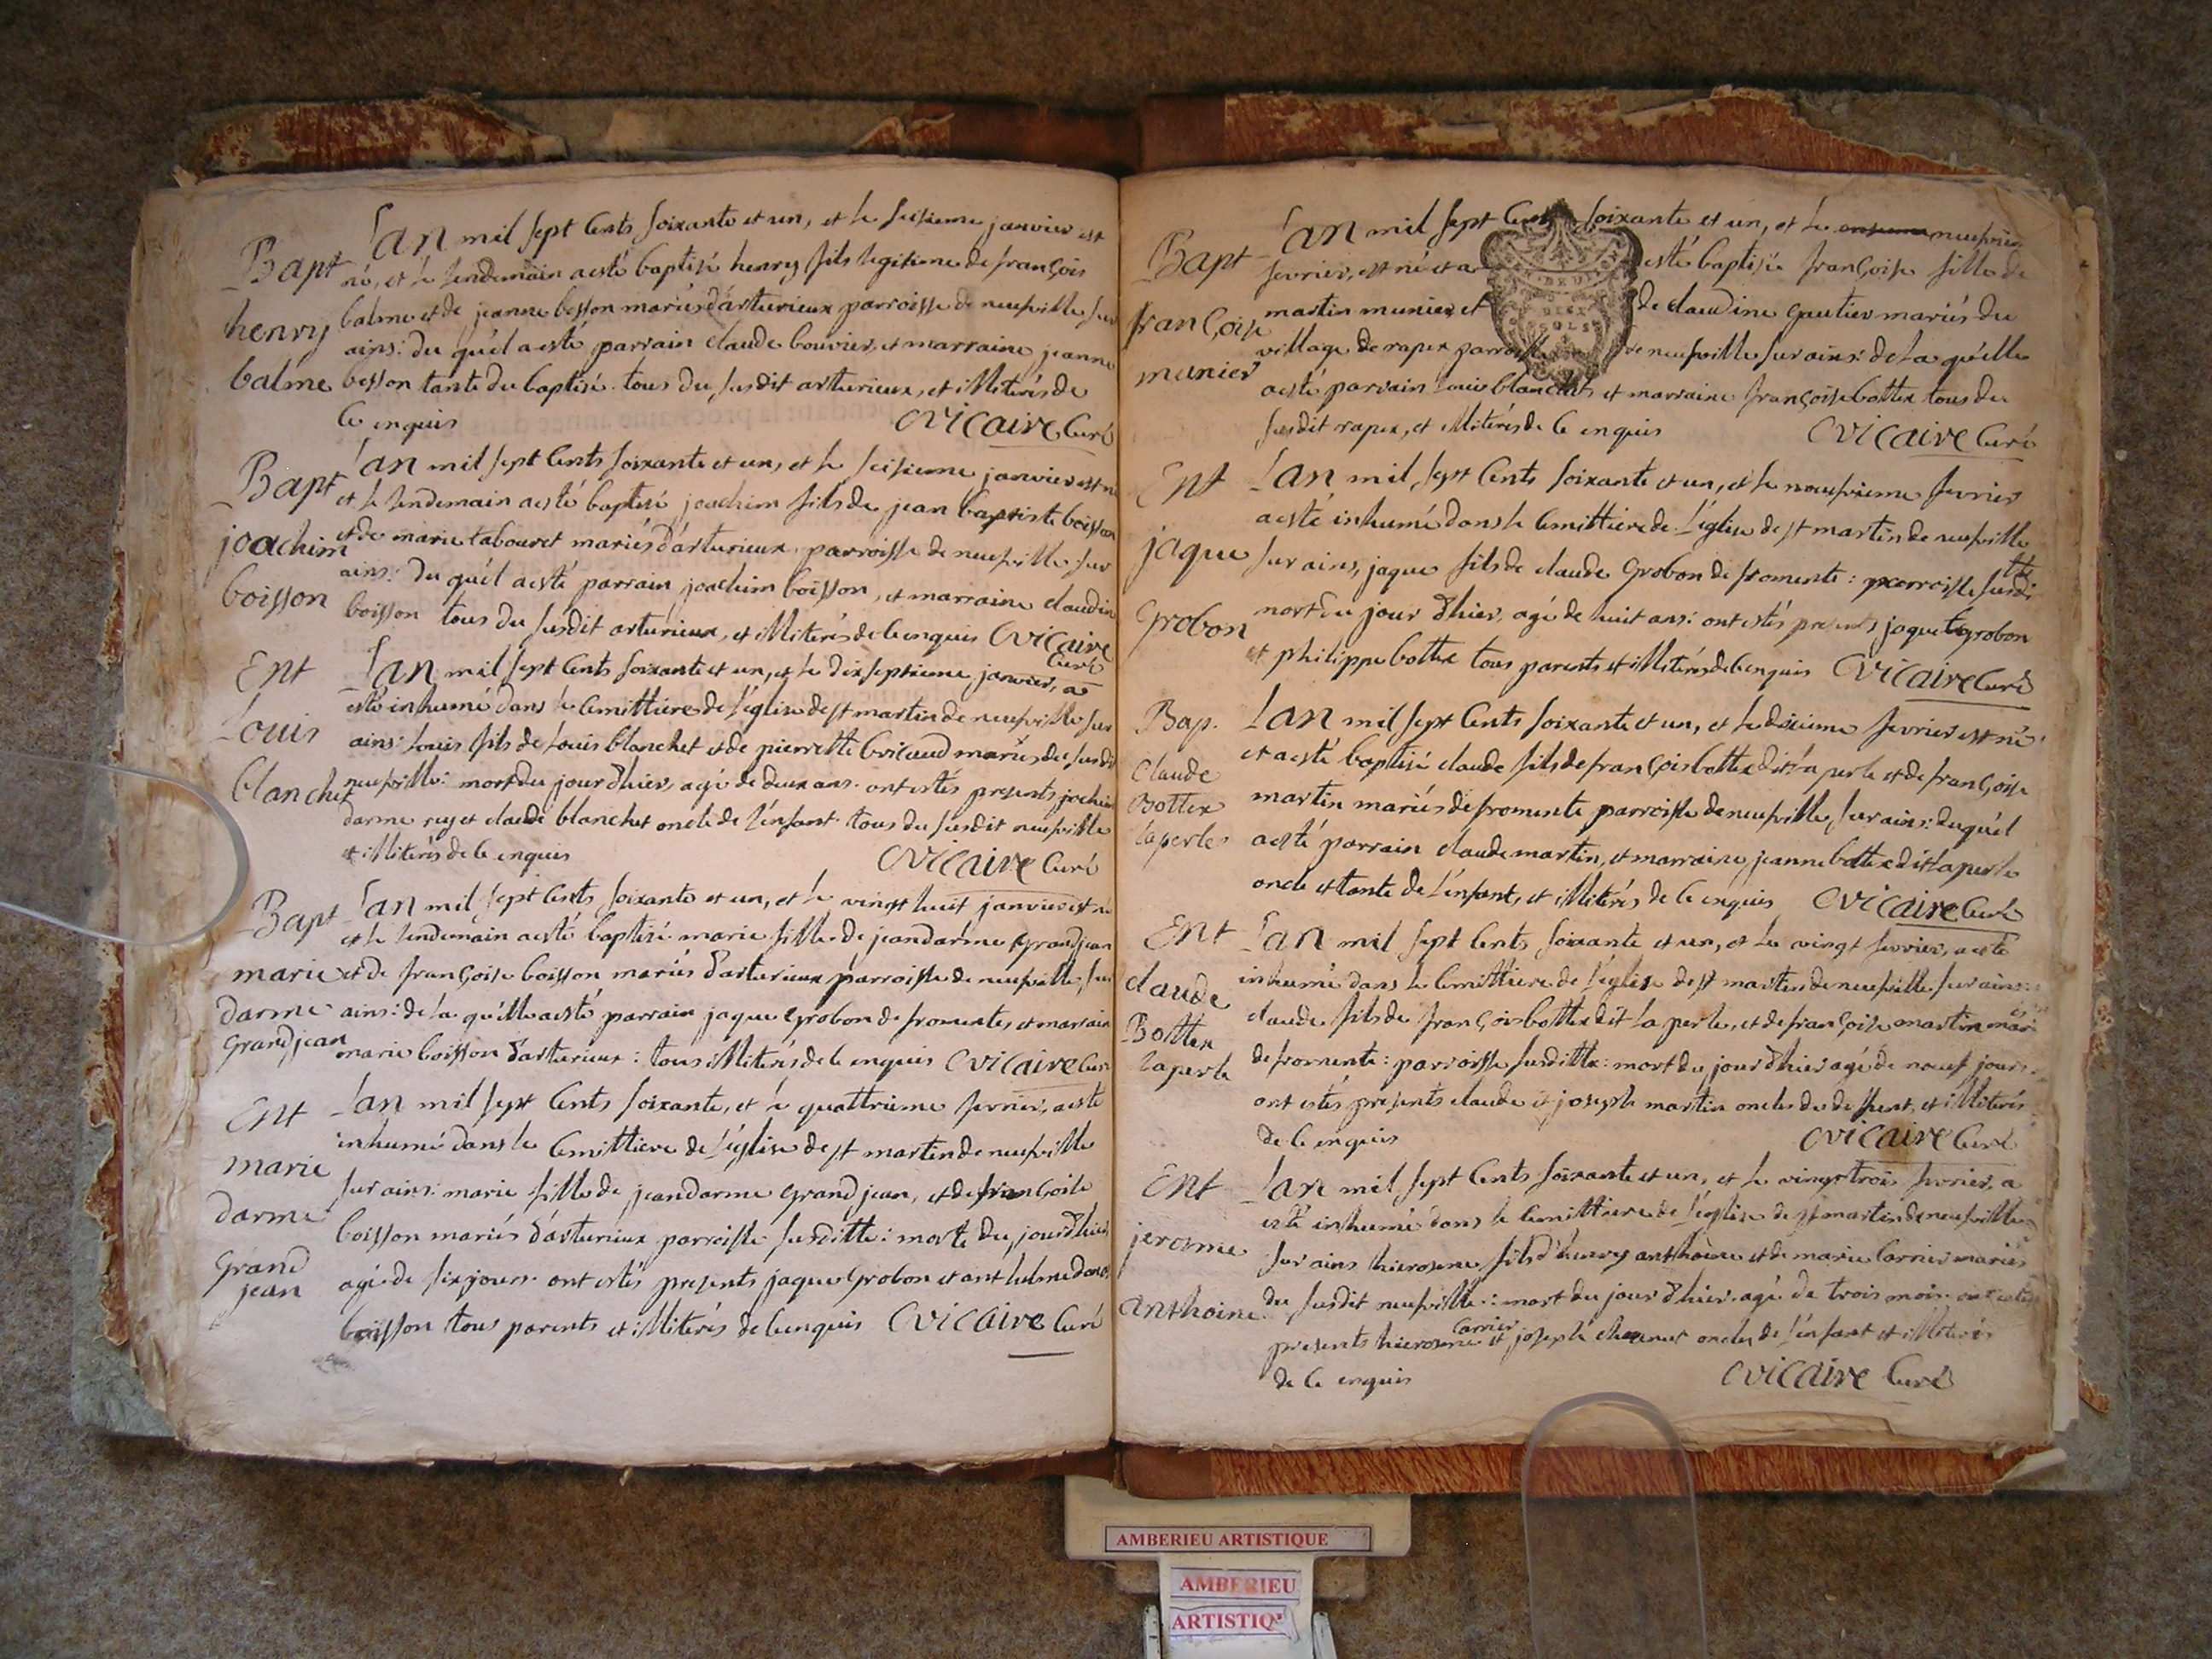 Bapt
henry
balme
L'an mil sept Cents soixante et un, et le seisieme janvier est
né, et le lendemain aesté baptisé henry fils legitime de françois
balme et de jeanne besson mariés d'arturieux parroisse de neufville sur
ains: du qu'el aesté parrain claude bouvier, et marraine jeanne
besson tante du baptisé. tous du susdit arturieux, et illiterés de
ce enquis CVicaire Curé
Bapt
joachim
boisson
L'an mil sept Cents soixante et un, et le seisieme janvier est né
et le lendemain aesté baptisé joachim fils de jean baptiste boisson
et de marie tabouret mariés d'arturieux parroisse de neufville sur
ains: du qu'el aesté parrain joachim boisson, et marraine claudine
boisson tous du susdit arturieux, et illiterés de ce enquis CVicaire
Curé
Ent
Louis
blanchet
L'an mil sept Cents soixante et un, et le dix septieme janvier, a
esté inhumé dans le Cemittiere de l'église de st martin de neufville sur
ains: louis fils de louis blanchet et de pierrette bricaud mariés du susdit
neufville: mort du jour d'hier, agé de deux ans. ont estés presents
darme rey et claude blanchet oncle de l'enfant tous du susdit neufville
et illiterés de ce enquis CVicaire Curé
Bapt
marie
darme
Grandjean
L'an mil sept Cents soixante et un, et le vingt huit janvier est né
et le lendemain aesté baptisé marie fille de jean darme Grandjean
et de françoise boisson mariés d'arturieux parroisse de neufville sur
ains: de la qu'elle aesté parrain jaque Grobon de fromente, et marraine
marie boisson d'arturieux: tous illiterés de ce enquis CVicaire Curé
Ent
marie
darme
Grand
jean
L'an mil sept Cents soixante, et le quattrieme fevrier, aesté
inhumé dans le Cemittiere de l'église de st martin de neufville
sur ains: marie fille de jean darme Grand jean, et de françoise
boisson mariés d'arturieux parroisse susditte: morte du jour d'hier
agé de six jours. ont estés presents jaque Grobon et anthelme
boisson tous parents et illiterés de ce enquis CVicaire Curé
Bapt
françoise
munier
L'an mil sept Cents soixante et un, et le neufvieme
fevrier, est né et a esté baptisée françoise fille de
martin munier et de claudine Gautier mariés du
village de rapex parroisse de neufville sur ains: de la qu'elle
aesté parrain louis blanchet et marraine françoise bottex tous du
susdit rapex, et illiterés de ce enquis CVicaire Curé
Ent
jaque
Grobon
L'an mil sept Cents soixante et un, et le neufvieme fevrier
aesté inhumé dans le Cemittiere de l'église de st martin de neufville
sur ains, jaque fils de claude Grobon de fromente: parroisse susditte
mort du jour d'hier, agé de huit ans: ont estés presents jaque Grobon
et philippe bottex tous parents et illiterés de ce enquis CVicaire Curé
Bap.
Claude
Bottex
laperle
L'an mil sept Cents soixante et un, et le dixieme fevrier est né
et aesté baptisé claude fils de françois bottex dit la perle et de françoise
martin mariés de fromente parroisse de neufville, sur ains: du qu'el
aesté parrain claude martin, et marraine jeanne bottex dit la perle
oncle et tante de l'enfant, et illiterés de ce enquis CVicaire Curé
Ent
claude
Bottex
laperle
L'an mil sept Cents soixante et un, et le vingt fevrier, aesté
inhumé dans le Cemittiere de l'église de st martin de neufville sur ains:
claude fils de françois bottex dit la perle, et de françoise martin mariés
de fromente: parroisse susditte: mort du jour d'hier agé de neuf jours.
ont estés presents claude et joseph martin oncles du deffunt, et illiterés
de ce enquis CVicaire Curé
Ent
jerosme
anthoine
L'an mil sept Cents soixante et un, et le vingt trois fevrier, a
esté inhumé dans le Cemittiere de l'église de st martin de neufville
sur ains hierosme fils d'henry anthoine et de marie Carrier mariés
du susdit neufville: mort du jour d'hier agé de trois mois ont estés
presents hierosme Carrier et joseph oncles de l'enfant et illiterés
de ce enquis CVicaire Curé
AMBERIEU ARTISTIQUE
AMBERIEU
ARTISTIQ